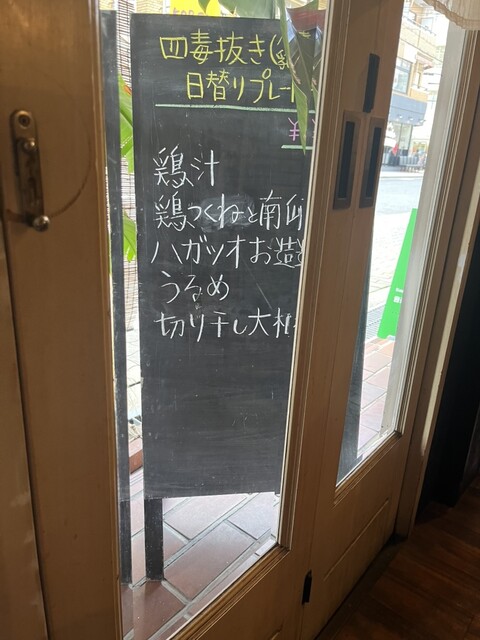 四毒抜き(
日替りプレート
¥
鶏汁
鶏つくねと南瓜
ハガツオお造
うるめ
切り干し大根